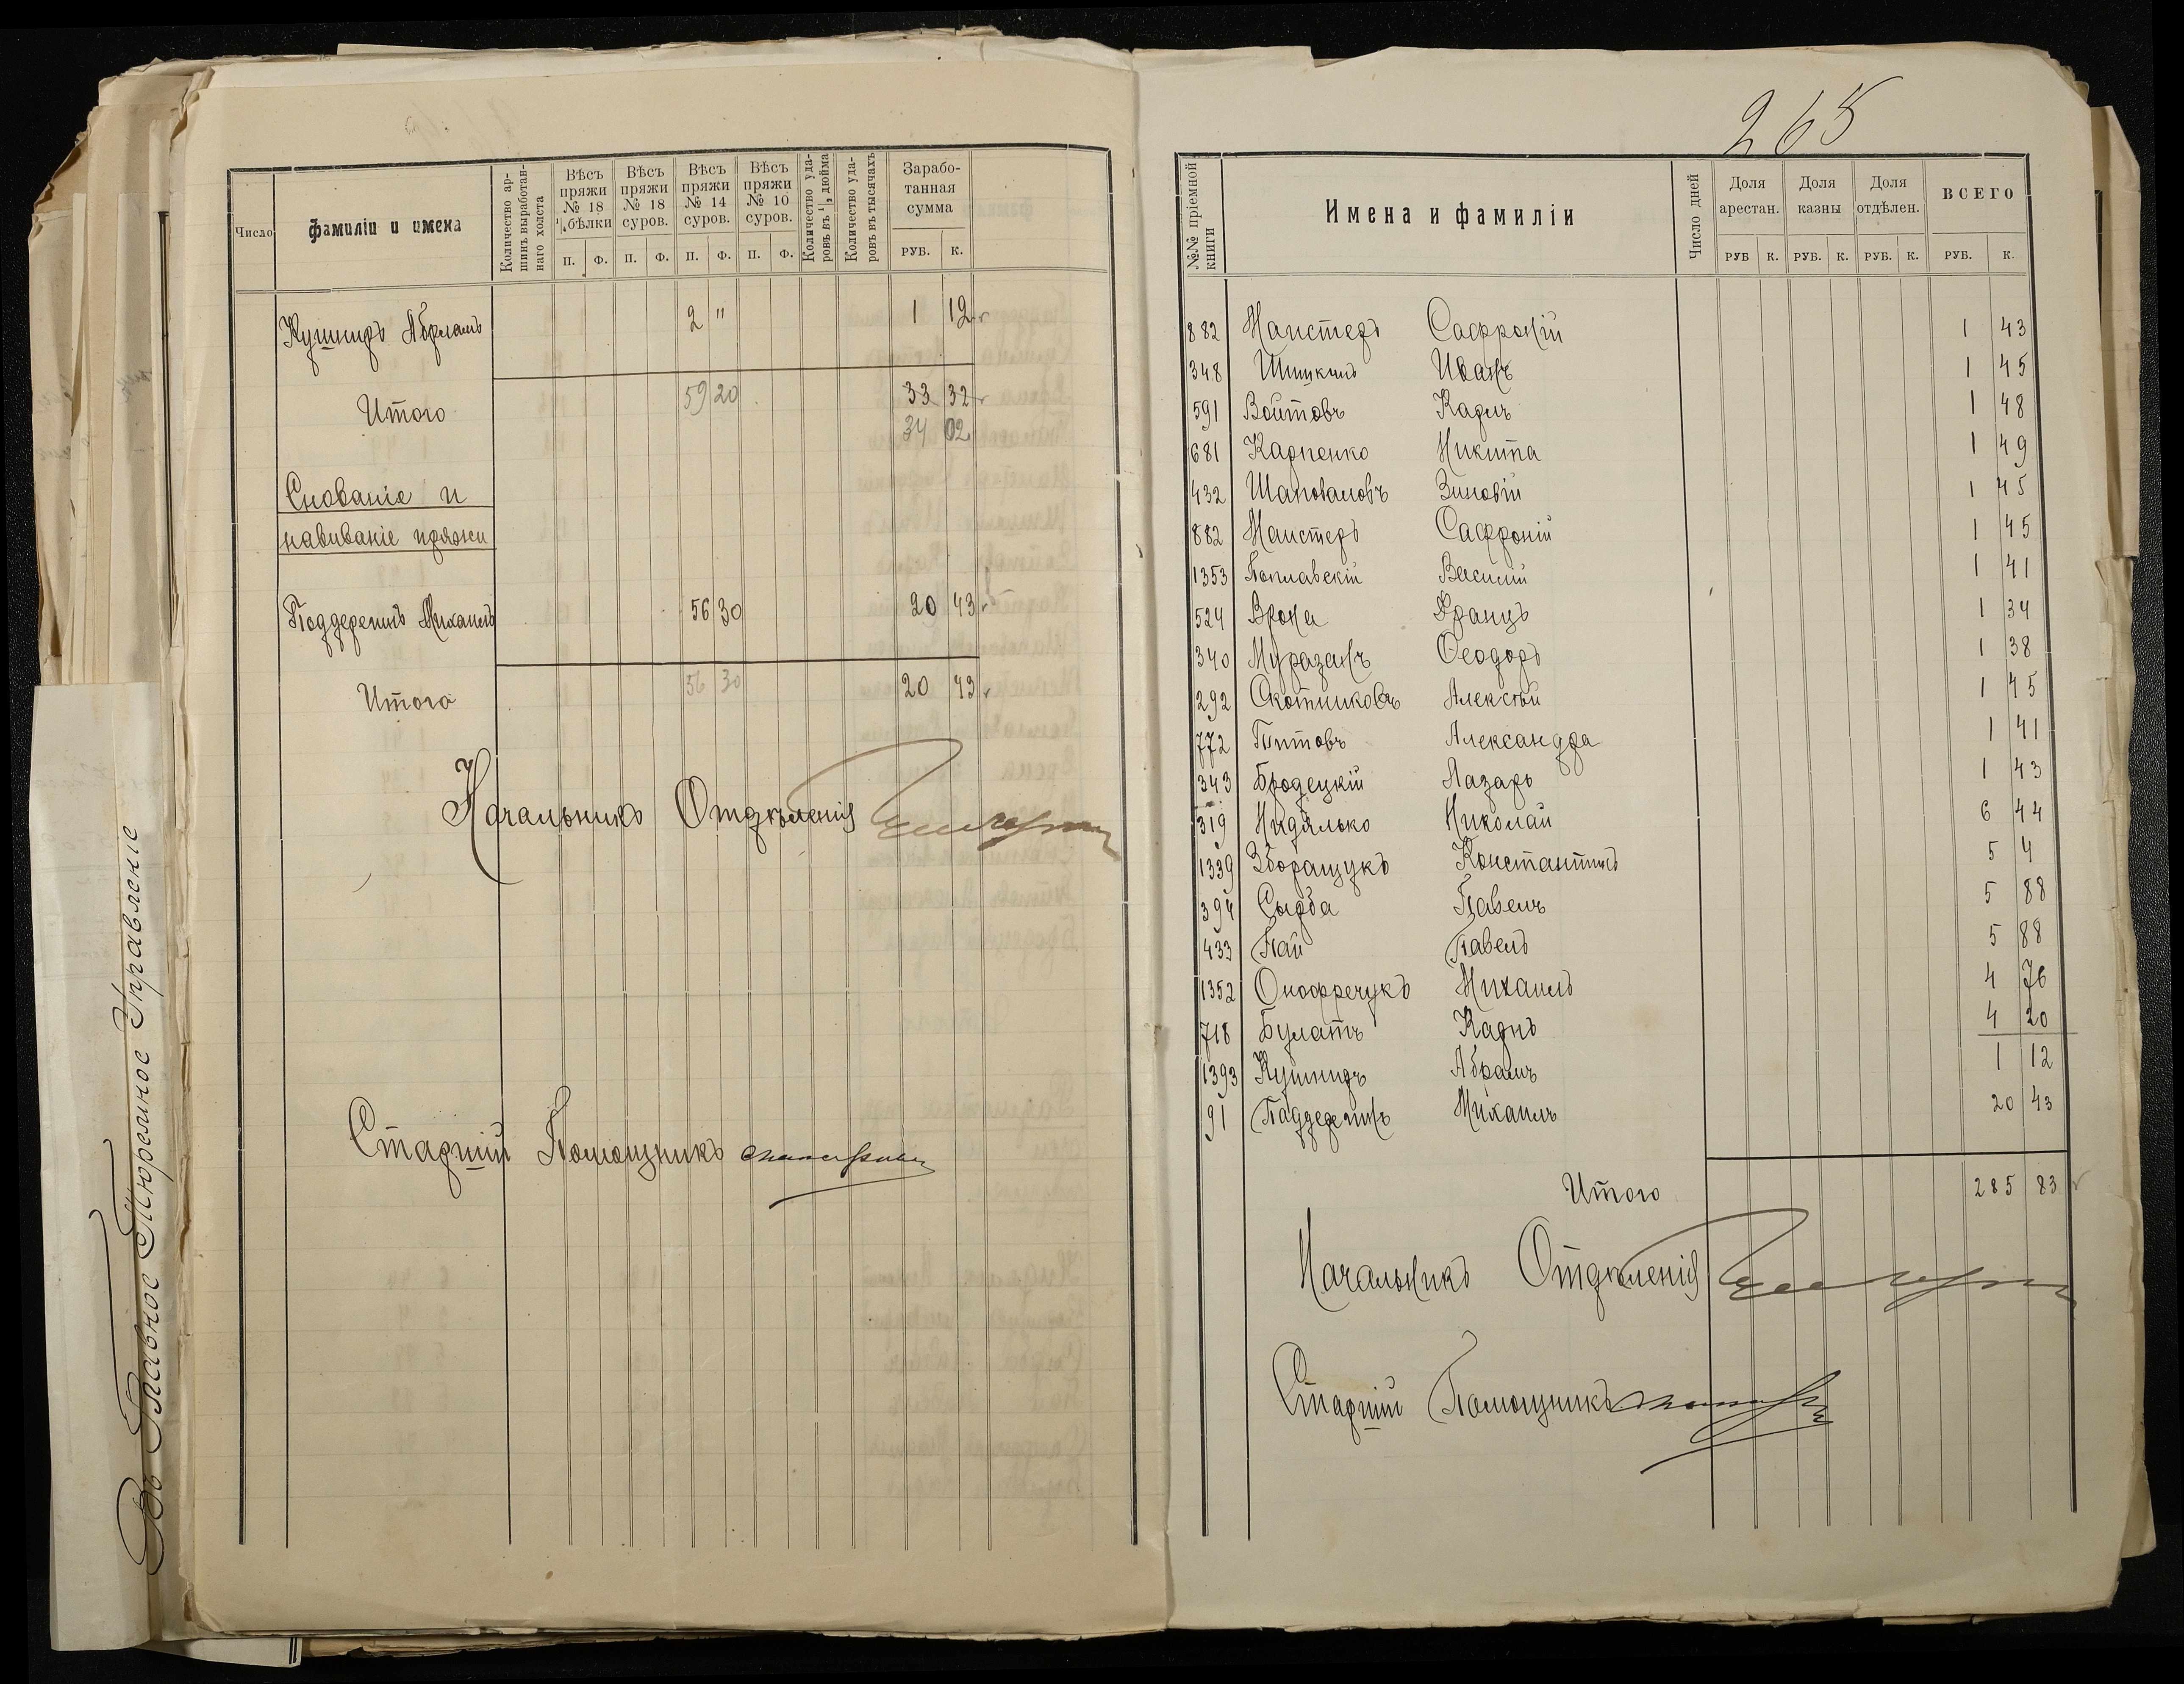 Въ Главное Тюремное Управленіе
Число
фамиліи и имена
Количество ар-
шинъ выработан-
наго холста
Вѣсъ пряжи № 18 ½ бѣлки
Вѣсъ пряжи № 18 суров.
Вѣсъ пряжи № 14 суров.
Вѣсъ пряжи № 10 суров.
Количество уда-
Количество уда-
ровъ въ тысячахъ
Зарабо-
танная
сумма
П. Ф. П. Ф. П. Ф. П. Ф. РУБ. К.
Кушниръ Абрамъ 2 " 1 12
Итого 59 20 33 32
34 02
Снованіе и
навиваніе пряжи
Поддерегинъ Михаилъ 56 30 20 43
Итого 56 30 20 43
Начальникъ Отдѣленія
Старшій Помощникъ
265
№№ пріемной
книги
Имена и фамиліи
Число дней
Доля арестан.
Доля казны
Доля отдѣлен.
ВСЕГО
РУБ К. РУБ. К. РУБ. К. РУБ. К.
882 Маистеръ Сафроній 1 43
348 Шишкинъ Иванъ 1 45
591 Войтовъ Карлъ 1 48
681 Карпенко Никита 1 49
432 Шаповаловъ Зиновій 1 45
882 Маистеръ Сафроній 1 45
1353 Поплавскій Василій 1 41
524 Врона Францъ 1 34
340 Муразанъ Ѳеодоръ 1 38
292 Скотниковъ Алексѣй 1 45
772 Титовъ Александра 1 41
343 Бродецкій Лазарь 1 43
319 Нидялько Николай 6 44
1339 Зборащукъ Константинъ 5 4
394 Сырба Павелъ 5 88
433 Пай Павелъ 5 88
1352 Онофречукъ Михаилъ 4 76
718 Булатъ Карпъ 4 20
1393 Кушниръ Абрамъ 1 12
91 Михаилъ 20 43
Итого 285 83
Начальникъ Отдѣленія
Старшій Помощникъ